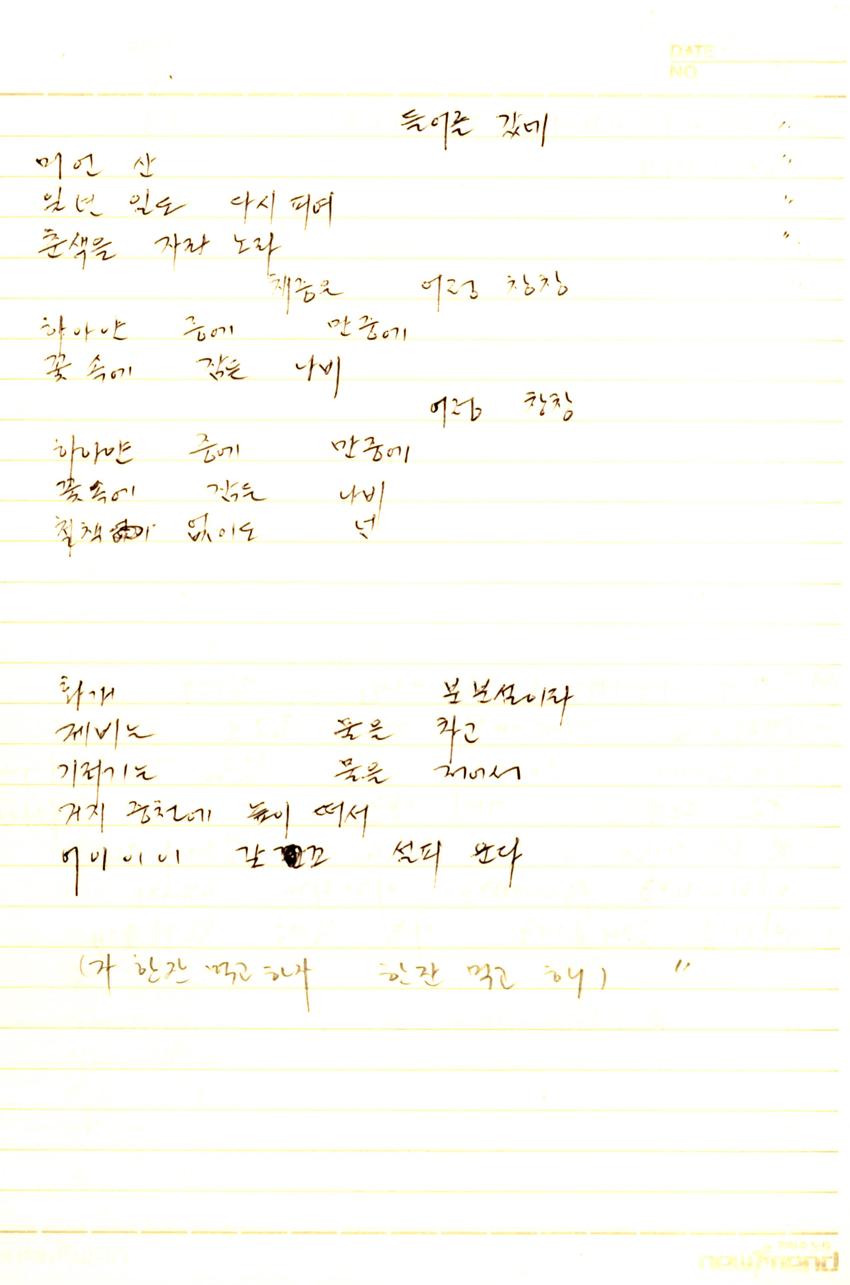 DATE
NO
들어를 갔네 "
머언 산 "
일년 일도 다시 피여 "
춘색을 자라 노라 "
채중은 어렁 창창
하아얀 중에 만중에
꽃 속에 잠든 나비
어렁 창창
하아얀 중에 만중에
꽃속에 잠든 나비
칠책 없이도 넌
화개 분분설이라
제비는 물을 차고
기러기는 물을 저어서
거지 중천에 높이 떠서
어이이이 갈 끄 설피 운다
(자 한잔 먹고 하자 한잔 먹고 해) "